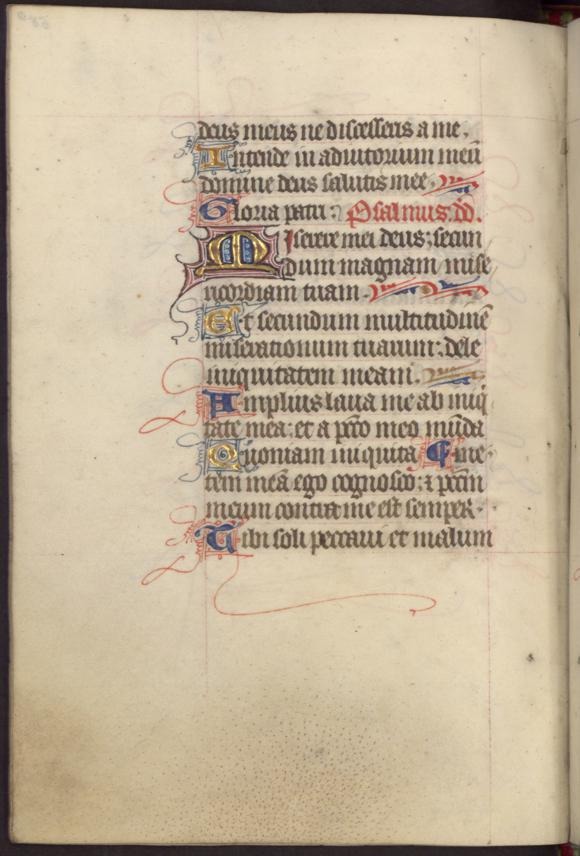 deus meus ne discesseris a me.
Intende in adiutorium meū
domine deus salutis mee.
Gloria patri: Psalmus. dd.
Miserere mei deus: secun
dum magnam mise
ricordiam tuam.
Et secundum multitudinē
miserationum tuarum: dele
iniquitatem meam.
Amplius laua me ab iniq̄
tate mea: et a pcc̄o meo mūda
Quoniam iniquita me
tem meā ego cognosco: ⁊ pcc̄m
meum contra me est semper.
Tibi soli peccaui et malum